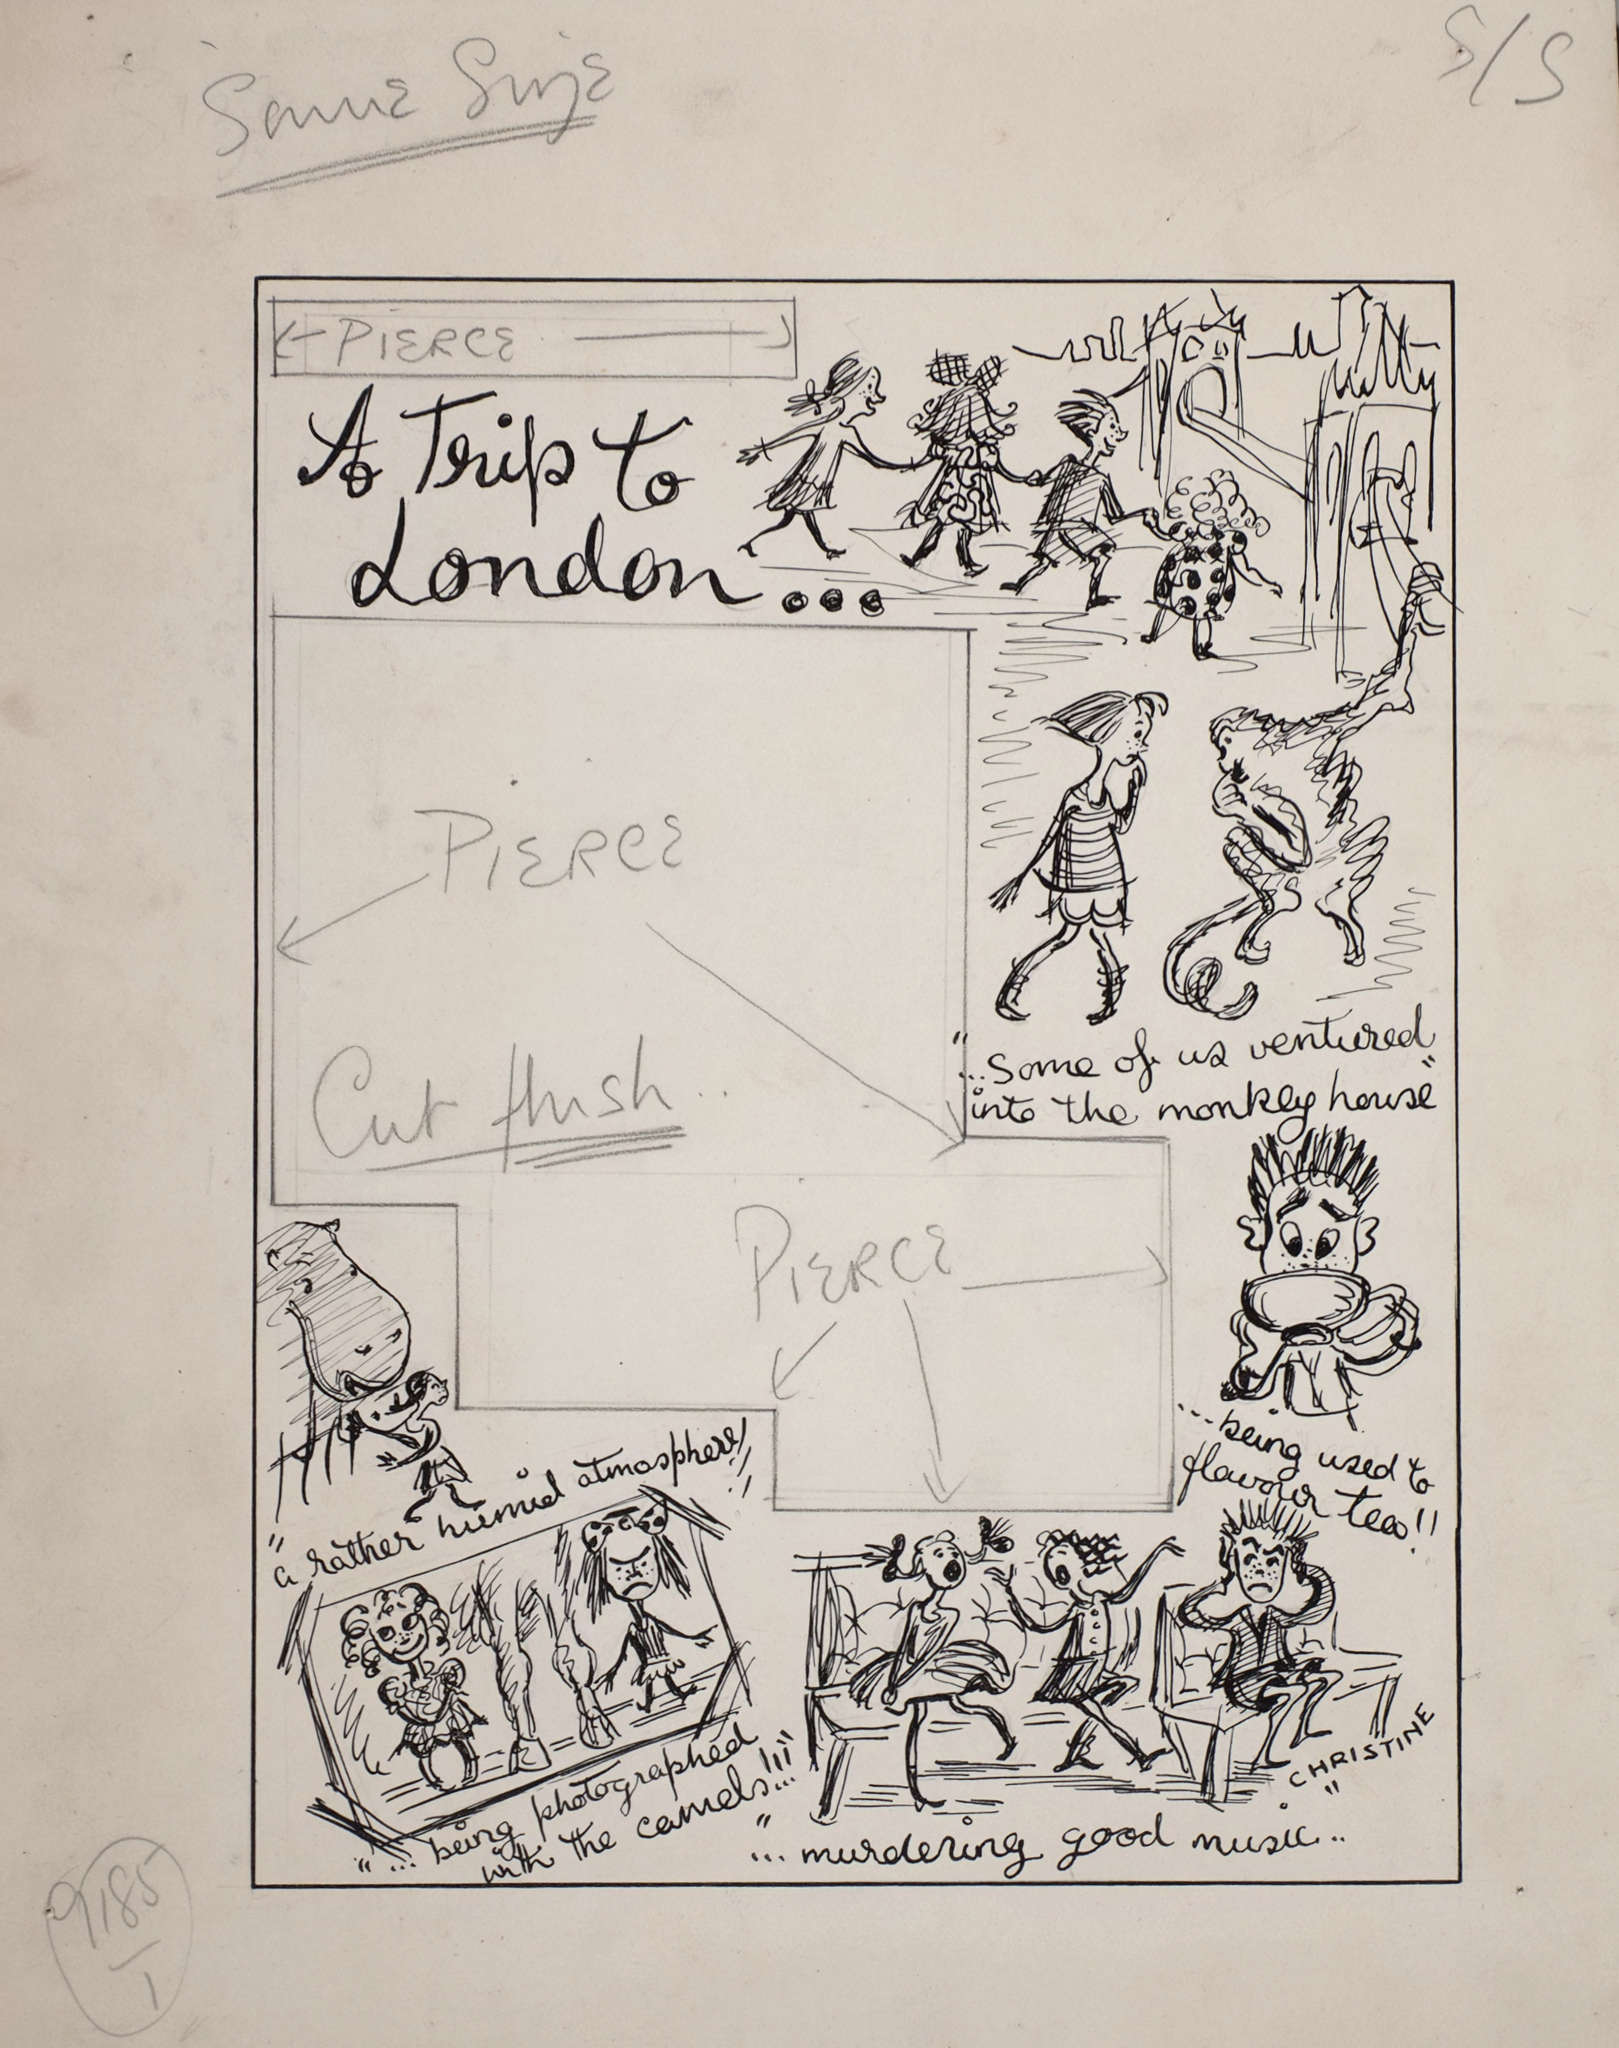 Same Size
S/S
PIERCE
A Trip to
London...
PIERCE
Cut flush..
"...Some of us ventured
into the monkey house"
PIERCE
...being used to
flavour tea!!
"a rather humid atmosphere!!!
"...being photographed
with the camels...!!!"
"...murdering good music.."
CHRISTINE
9185
1